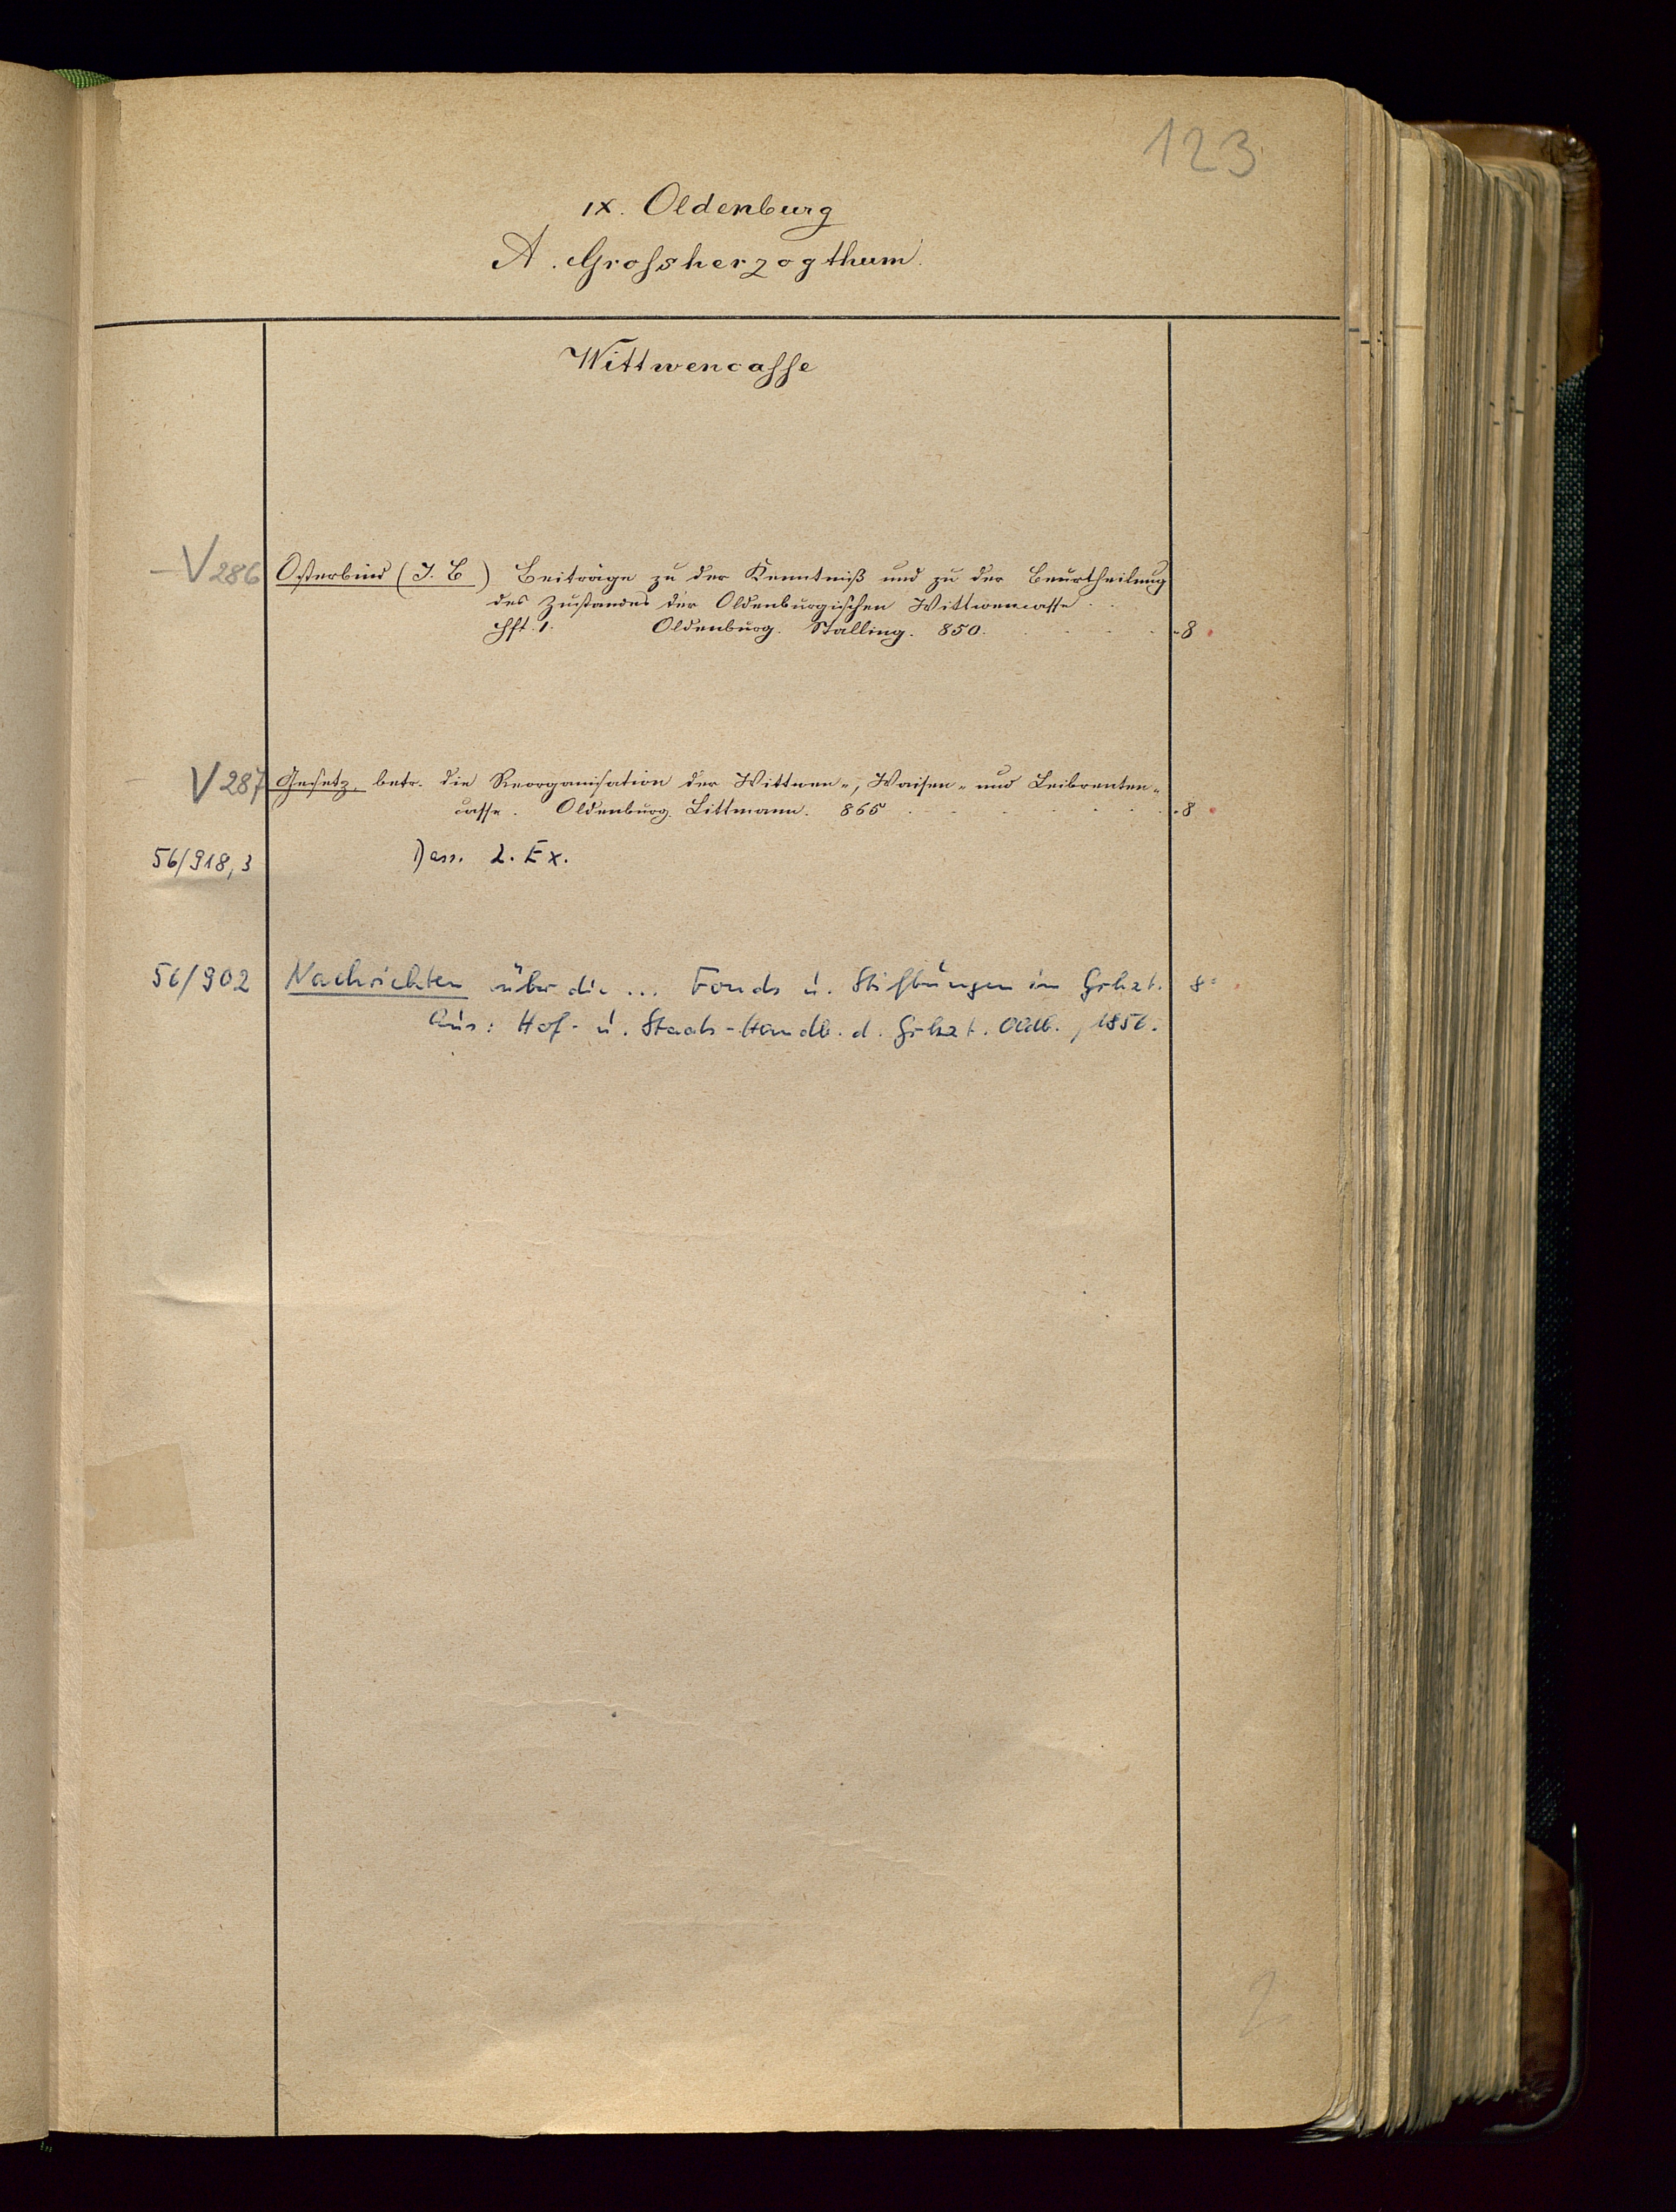 123
IX. Oldenburg
A. Grossherzogthum.
Wittwencasse
V 286 Osterbind (J. C) Beiträge zu der Kenntniß und zu der Beurtheilung
des Zustandes der Oldenburgischen Wittwencasse.
Hft. 1. Oldenburg. Stalling. 850. 8
V 287 Gesetz, betr. die Reorganisation der Wittwen-, Waisen- und Leibrenten-
casse. Oldenburg. Littmann. 865 8
56/918,3 Dass. 2. Ex.
56/902 Nachrichten über die ... Fonds u. Stiftungen im Grhzt. 8°
Aus: Hof- u. Staats-Handb. d. Grhzt. Oldb., 1856.
2